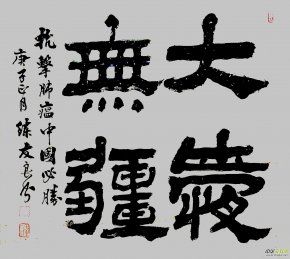 大愛
無疆
抗擊肺瘟中國必勝
庚子正月 練友良书